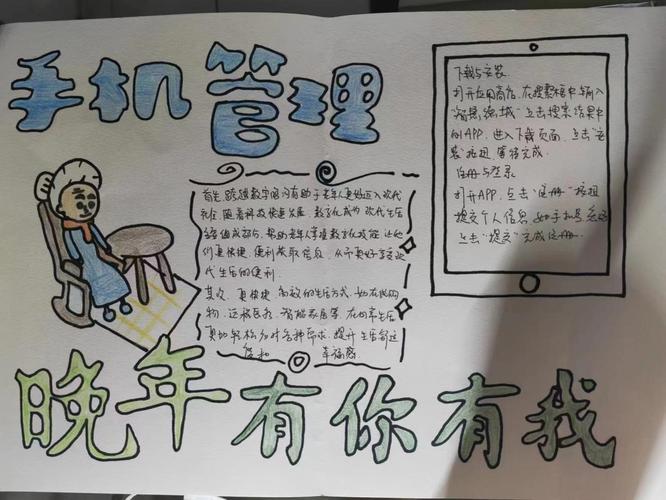 手机管理
首先,跨越数字鸿沟有助于老年人更好迈入现代
社会.随着科技快速发展,数字化成为现代生活
组成部分,帮助老年人掌握数字化技能,让他
们更快捷、便利获取信息,从而更好享受现
代生活的便利.
其次,更快捷、高效的生活方式,如在线购
物、远程医疗、智能家居等,在日常生活
更加轻松应对各种需求,提升生活舒适
度和 幸福感.
下载与安装
打开应用商店,在搜索框中输入
"智慧 城"点击搜索结果中
的APP,进入下载页面,点击"安
装"按钮,等待完成.
注册与登录
打开APP,点击"注册"按钮
提交个人信息,如手机号
点击"提交"完成注册.
晚年有你有我